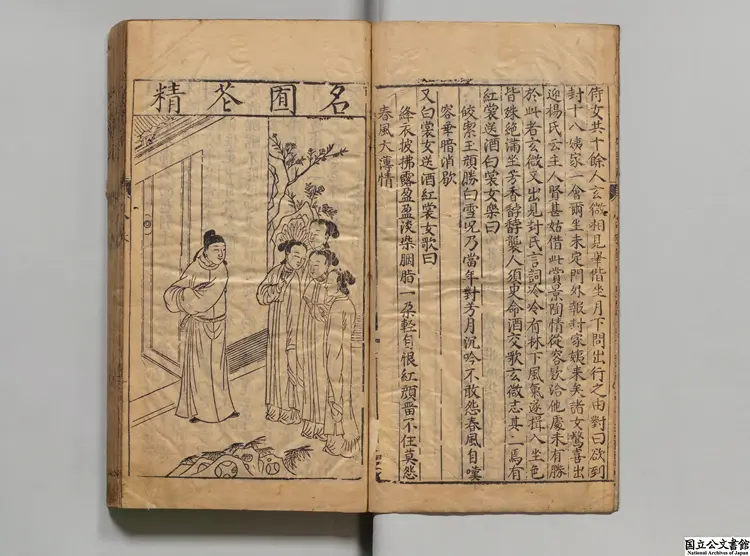 侍女共十餘人玄微相見畢偕坐月下問出行之由對曰欲到
封十八姨家一會爾坐未定門外報封家姨来矣諸女驚喜出
迎楊氏云主人賢甚姑借此賞景陶情從容歡洽他處未有勝
於此者玄微又出見封氏言詞泠泠有林下風氣遂揖入坐色
皆殊絕滿坐芳香馞馞襲人須臾命酒交歌玄微志其一焉有
紅裳送酒白裳女樂曰
皎潔玉顔勝白雪况乃當年對芳月沉吟不敢怨春風自嘆
容華暗消歇
又白裳女送酒紅裳女歌曰
絳衣披拂露盈盈淡染胭脂一朵輕自恨紅顔畱不住莫怨
春風大薄情
名囿芲精
国立公文書館
National Archives of Japan